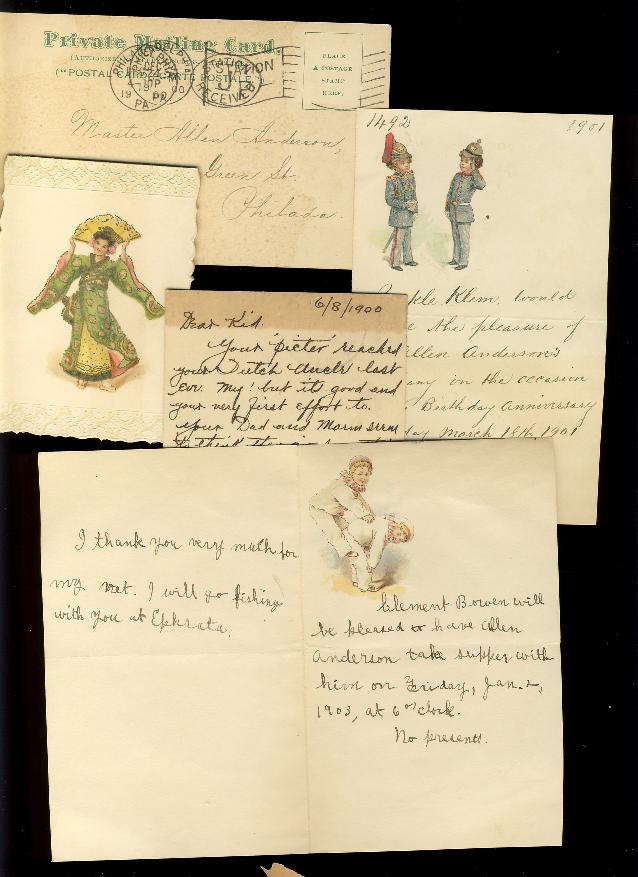 Private Mailing Card.
("POSTAL CARD-CARTE POSTALE.")
PHILADELPHIA
DEC
24
PA.
STATION
J
RECEIVED
PLACE
A POSTAGE
STAMP
HERE.
Master Allen Anderson,
Green St.
Philada.
1492 1901
kle Klem, would
e the pleasure of
llen Anderson's
any on the occasion
Birthday Anniversary
day March 18th 1901
6/8/1900
Dear Kid.
Your 'picter' reached
your Dutch Uncle last
Eve. My! but it's good and
your very first effort to.
Your Dad and Mama seem
to think
I thank you very much for
my net. I will go fishing
with you at Ephrata.
Clement Bowen will
be pleased to have Allen
Anderson take supper with
him on Friday, Jan. 2,
1903, at 6 o'clock.
No presents.